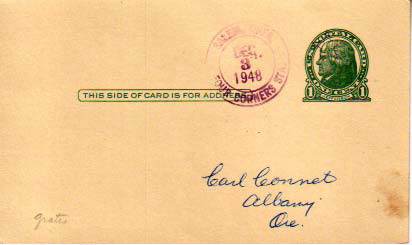 SALEM, OREG.
DEC.
3
1948
FOUR CORNERS STA.
THIS SIDE OF CARD IS FOR ADDRESS
U.S. POSTAGE
1 1
Carl Connet
Albany
Ore.
gratis